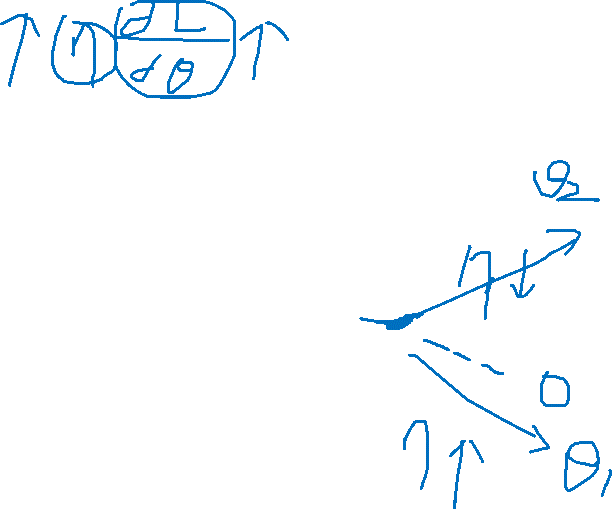 ↑ η dL/dθ ↑
θ₂
η ↓
0
η ↑ θ₁